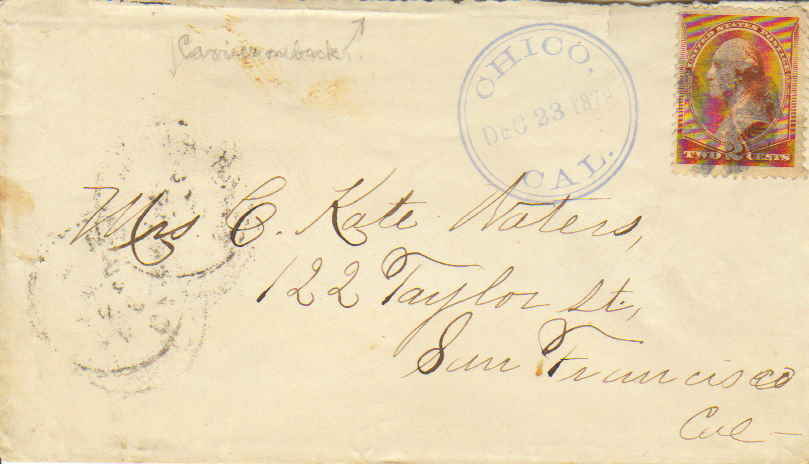 Carrier on back
CHICO,
DEC 23 187
CAL.
UNITED STATES POSTAGE
TWO 2 CENTS
Mrs C. Kate Waters,
122 Taylor st.,
San Francisco
Cal-